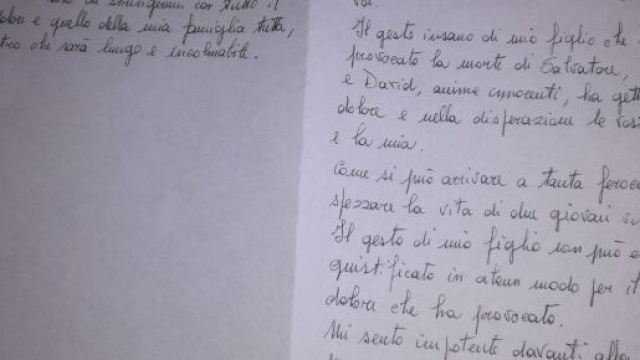 dolore e quello della mia famiglia tutta,
che sarà lungo e incolmabile.
voi.
Il gesto insano di mio figlio che
provocato la morte di Salvatore,
e David, anime innocenti, ha gett
dolore e nella disperazione le vos
e la mia.
Come si può arrivare a tanta feroc
spezzare la vita di due giovani vi
Il gesto di mio figlio non può e
giustificato in alcun modo per il
dolore che ha provocato.
Mi sento impotente davanti alla